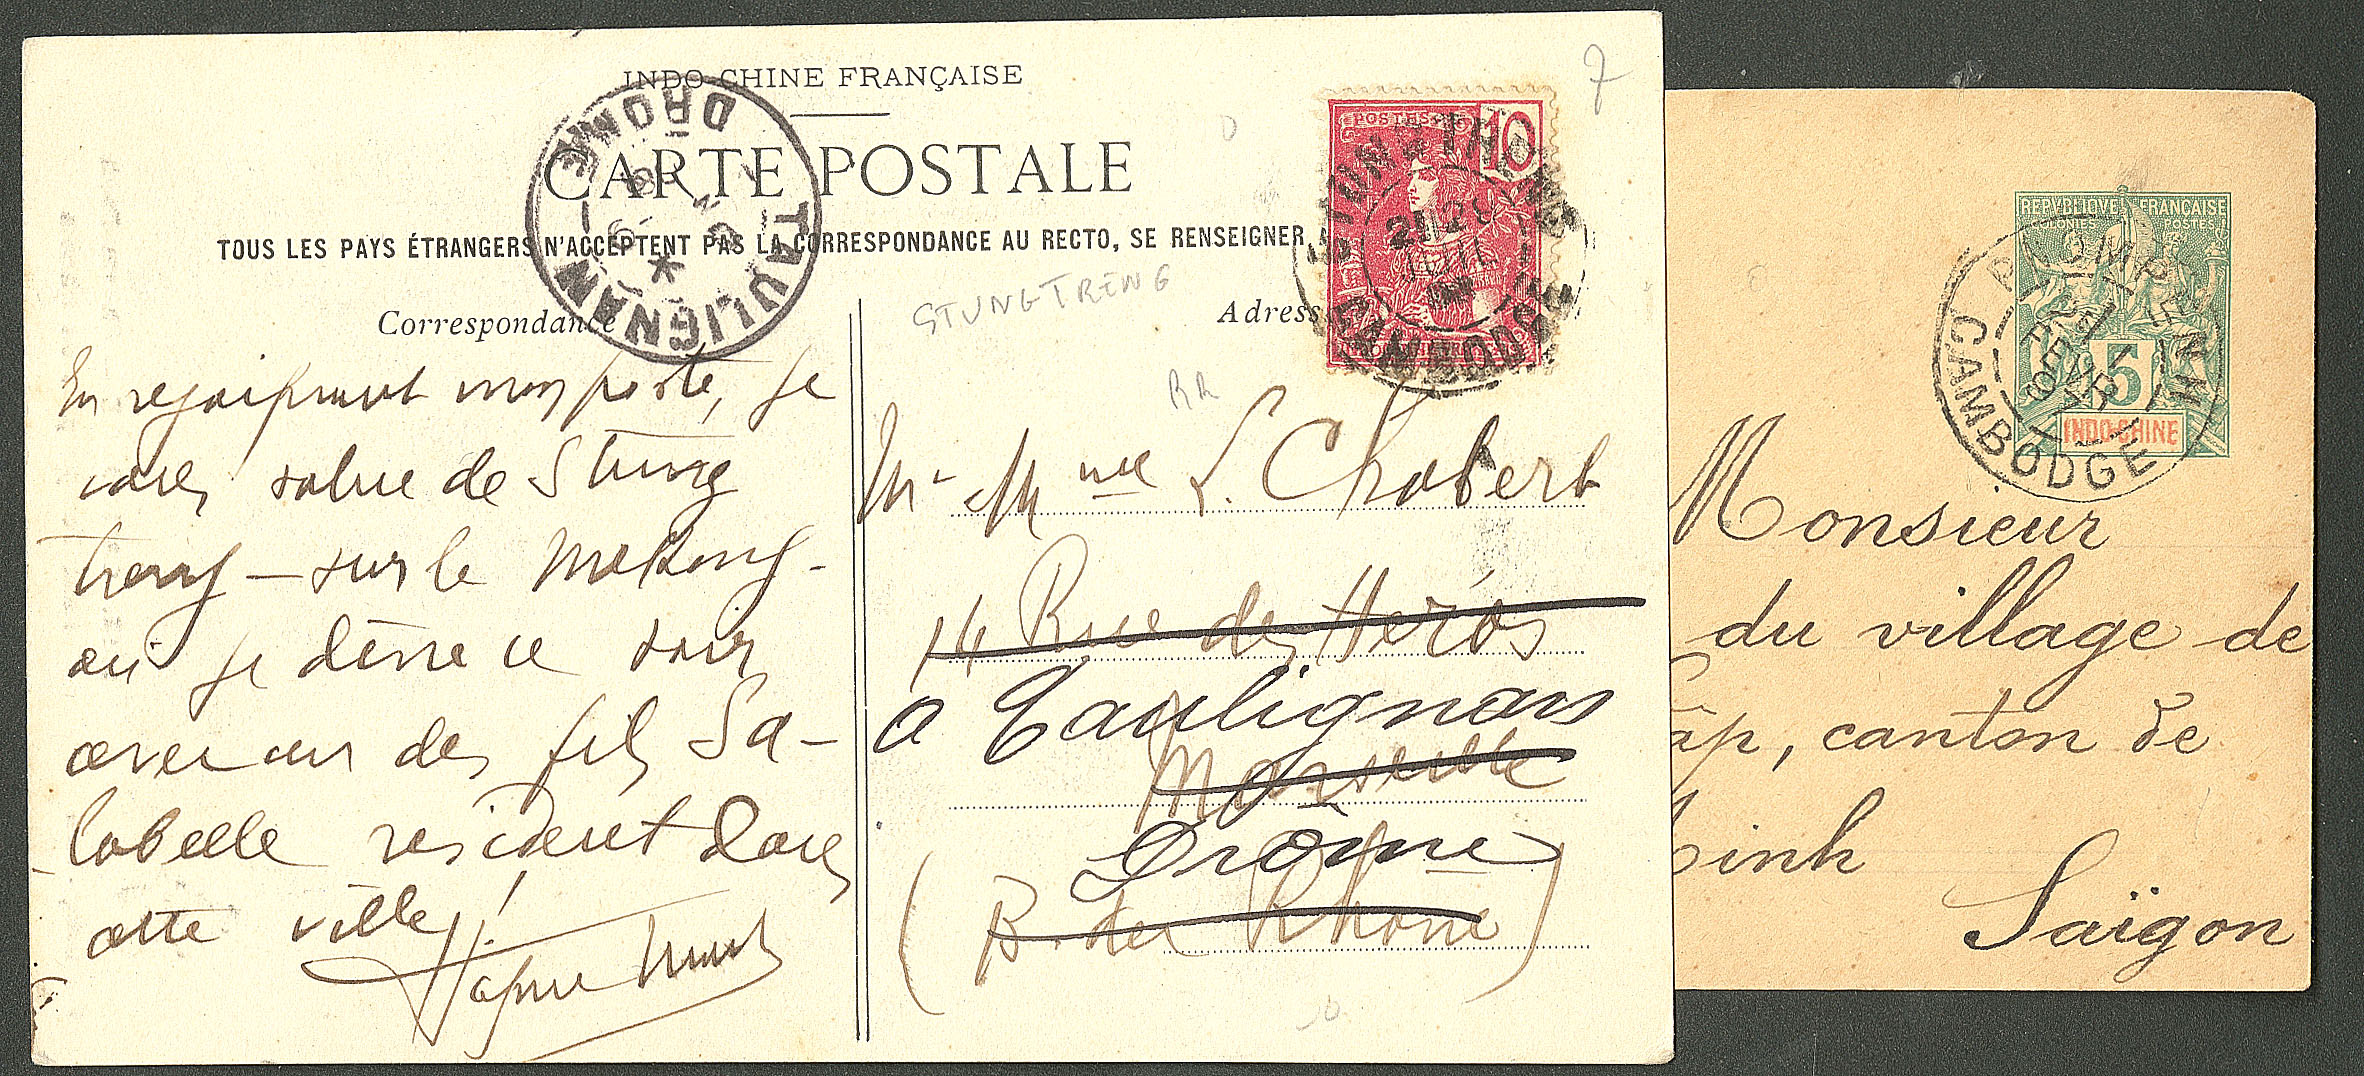 INDO-CHINE FRANÇAISE
CARTE POSTALE
TOUS LES PAYS ÉTRANGERS N'ACCEPTENT PAS LA CORRESPONDANCE AU RECTO, SE RENSEIGNER
Correspondance
Adress
STUNGTRENG
RR
7
TAULIGNAN
DROME
POSTES
10
STUNG-TRENG
21 29
JUIL
CAMBODGE
En rejoignant mon poste, je
vous salue de Stung
treng — sur le Mekong -
où je dîne ce soir
avec un des fils Sa-
labelle résident dans
cette ville !
Mr Mme L. Chabert
14 Rue des Héros
à Taulignan
Marseille
Drôme
(B. du Rhône)
REPUBLIQUE FRANÇAISE
COLONIES POSTES
5
INDO-CHINE
PNOMPENH
CAMBODGE
Monsieur
du village de
âp, canton de
inh
Saïgon